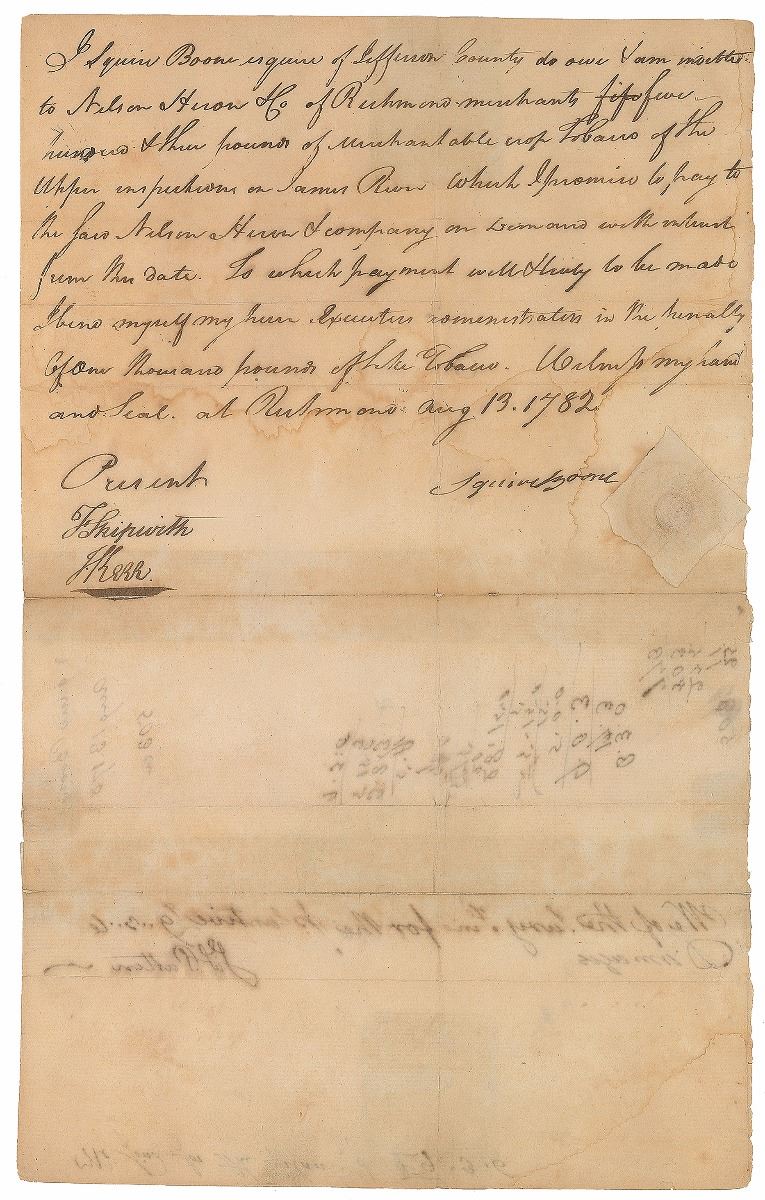 I Squire Boone esquire of Jefferson County do owe & am indebted
to Nelson Heron & Co of Richmond merchants five
hundred & three pounds of merchantable crop Tobacco of the
Upper inspections on James River which I promise to pay to
the said Nelson Heron & company on demand with interest
from this date. To which payment well & truly to be made
I bind myself my heirs Executors administrators in the penalty
of One thousand pounds of like Tobacco. Witness my hand
and Seal. at Richmond Aug 13. 1782
Squire Boone
Present
F Skipwith
J Kerr.
We of the Jury find for the plantive
Damages